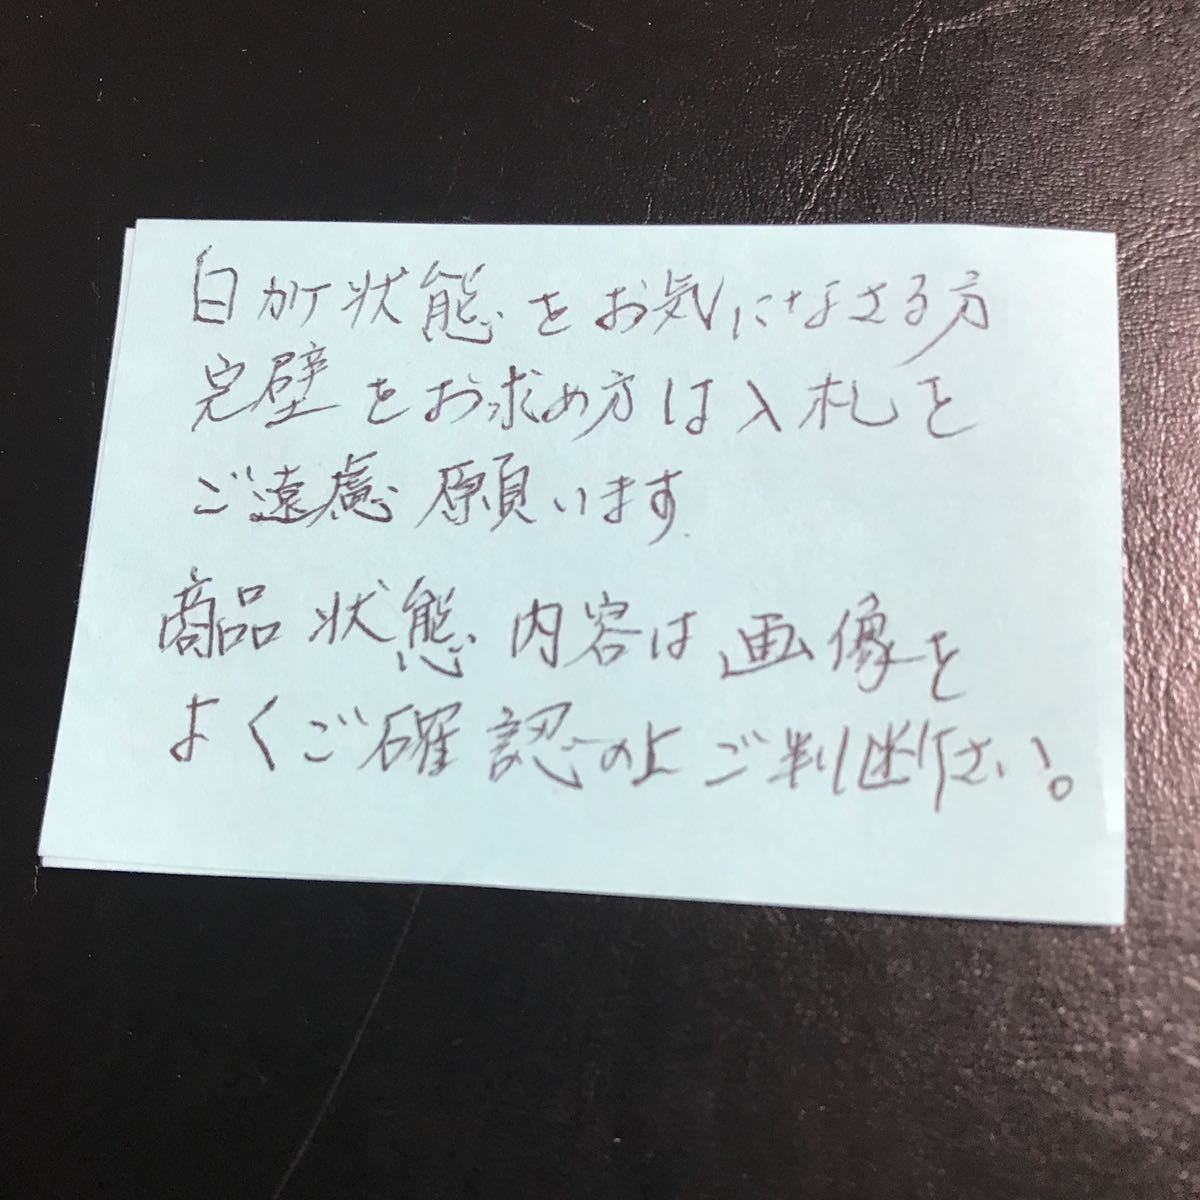 白カケ状態をお気になさる方
完璧をお求め方は入札を
ご遠慮願います
商品状態内容は画像を
よくご確認の上ご判断下さい。